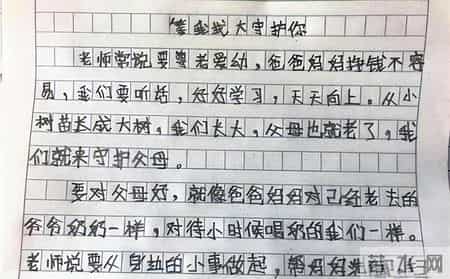 等我长大守护你
老师常说要尊老爱幼，爸爸妈妈挣钱不容
易，我们要听话，好好学习，天天向上。从小
树苗长成大树，我们长大，父母也就老了，我
们就来守护父母。
要对父母好，就像爸爸妈妈对已经老去的
爷爷奶奶一样，对待小时候喝奶的我们一样。
老师说要从身边的小事做起，帮妈妈